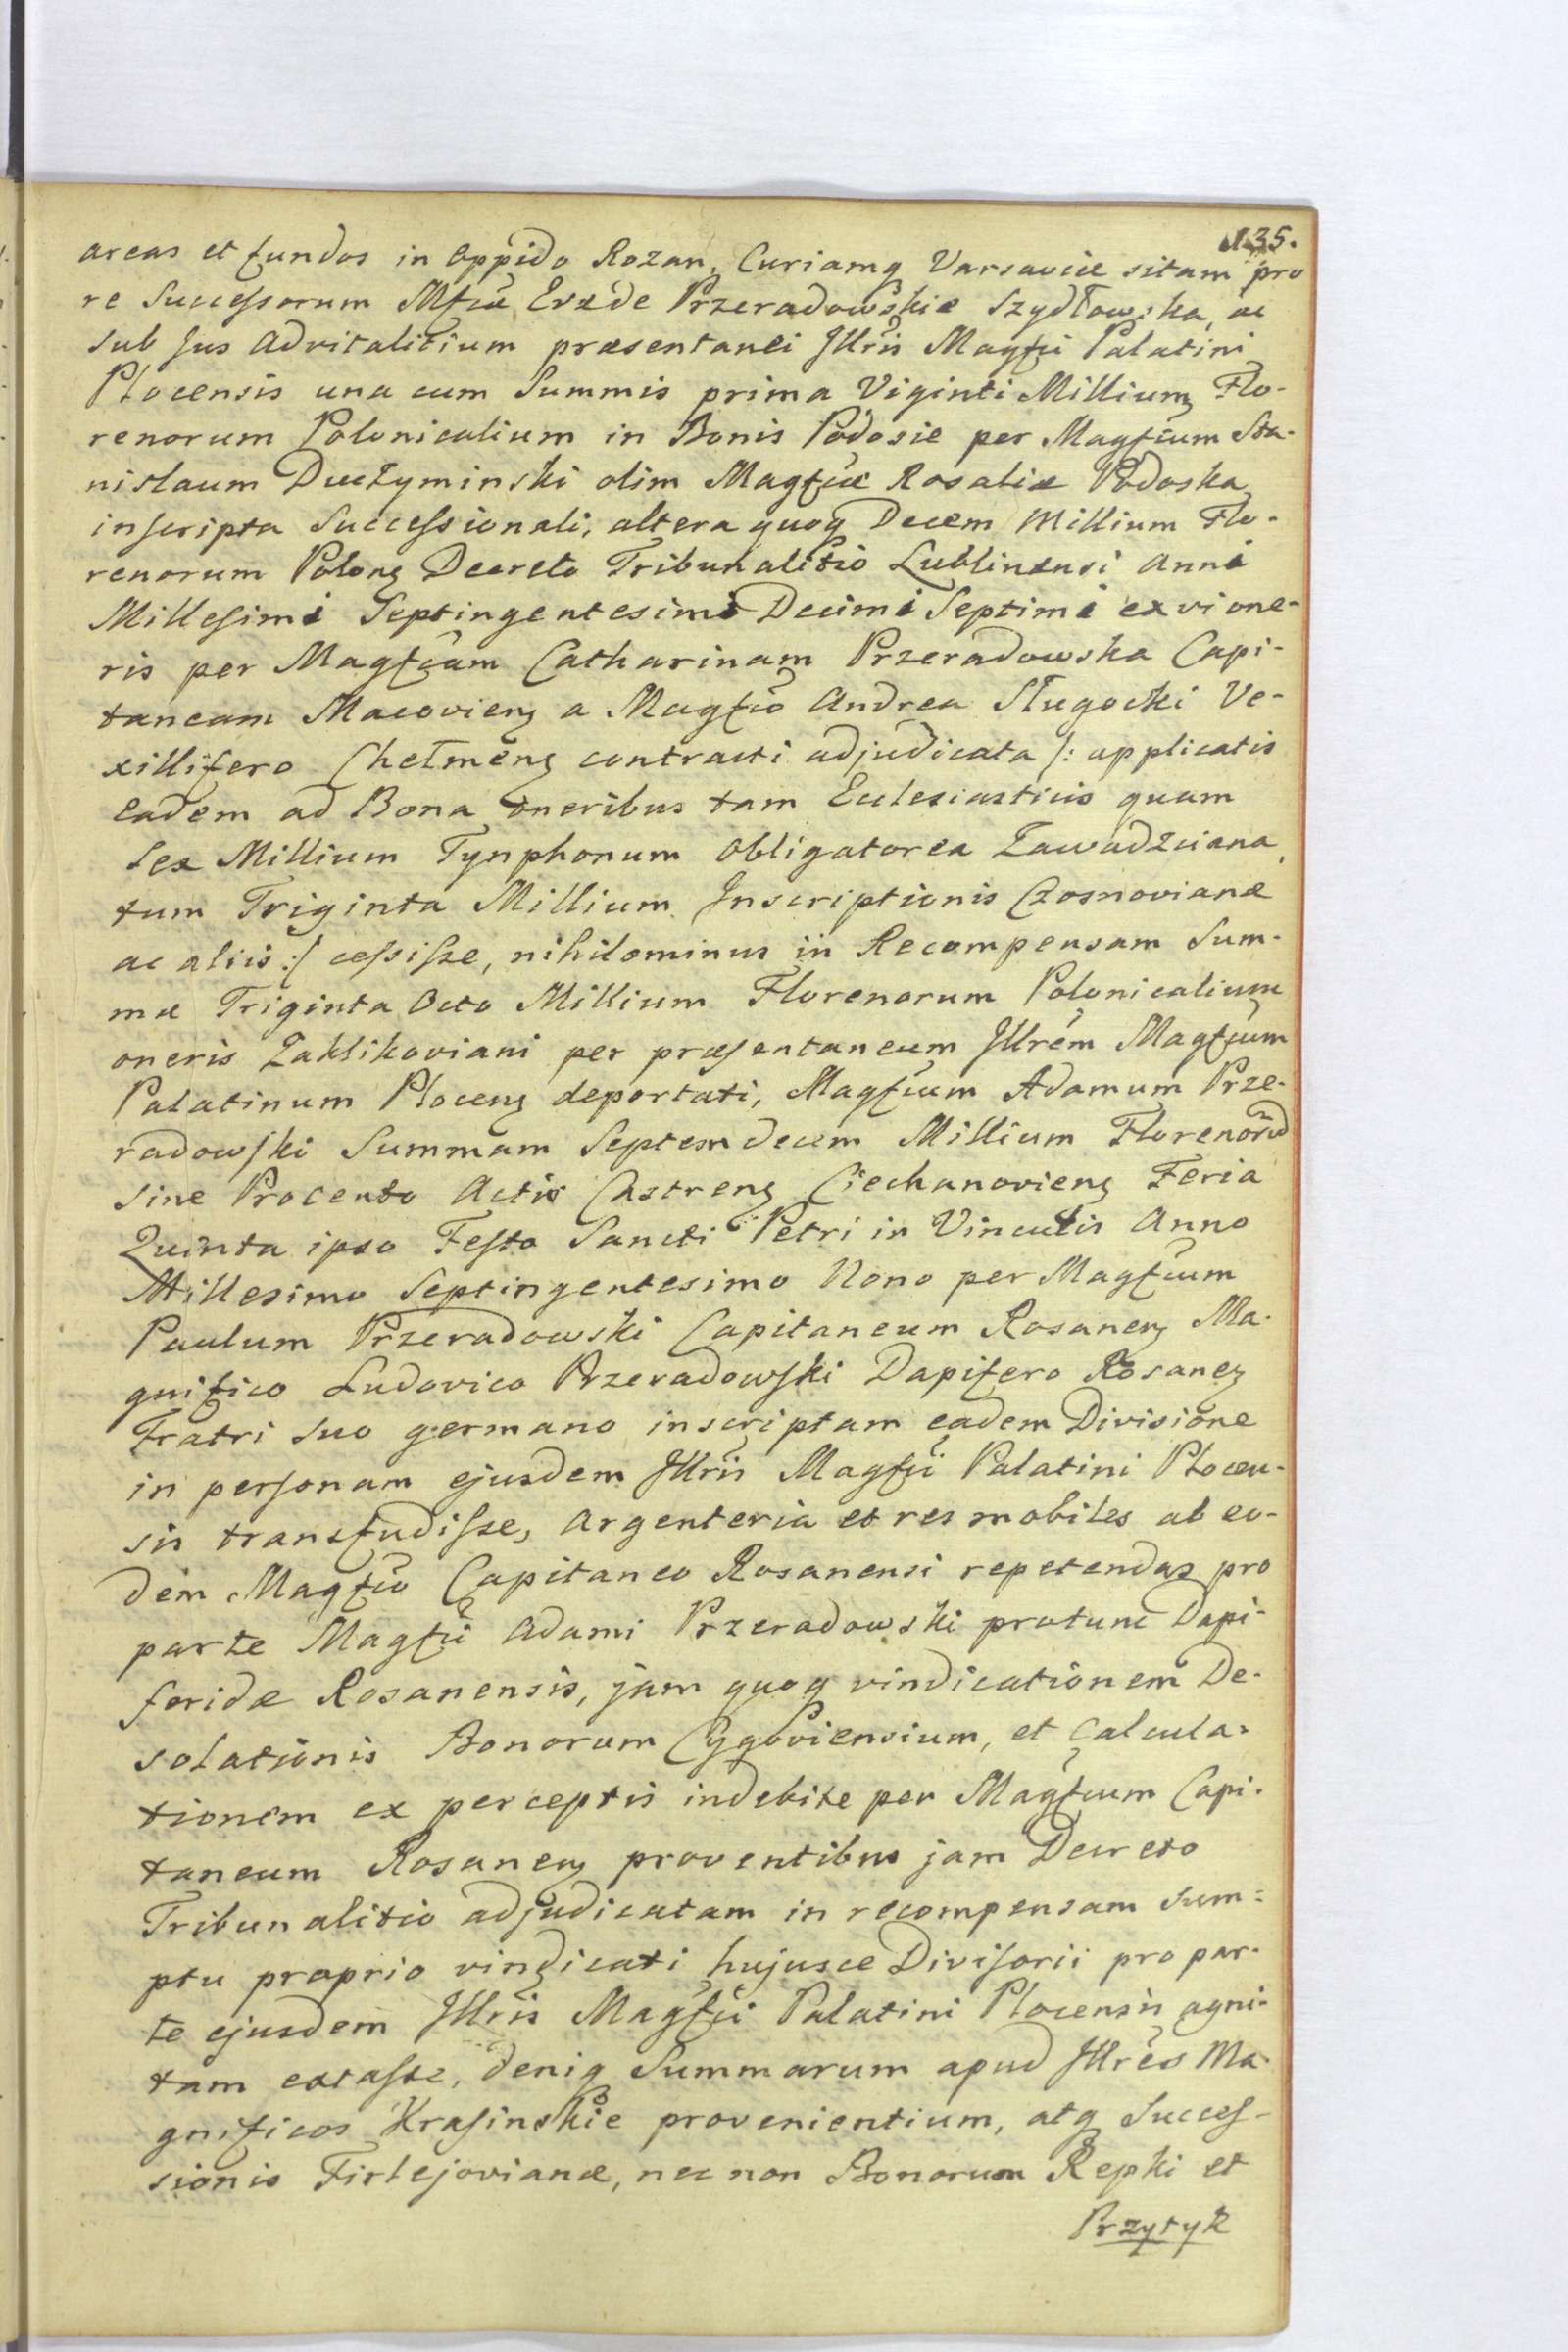 135.
areas et fundos in Oppido Rozan, Curiamq Varsaviæ sitam pro
re Successorum Mfcæ Evæ de Przeradowskie Szydłowska, ac
sub Jus Advitalitium præsentanei Jllris Magfci Palatini
Plocensis una cum Summis prima Viginti Millium Flo-
renorum Polonicalium in Bonis Podosie per Magfcum Sta-
nislaum Duczyminski olim Magfcæ Rosaliæ Podoska
inscripta Successionali, altera quoq Decem Millium Flo-
renorum Polonq Decreto Tribunalitio Lublinensi Anni
Millesimi Septingentesimi Decimi Septimi ex vi one-
ris per Magfcam Catharinam Przeradowska Capi-
taneam Macovienq a Magfco Andrea Sługocki Ve-
xillifero Chełmenq contracti adjudicata /: applicatis
eadem ad Bona oneribus tam Ecclesiasticis quam
Sex Millium Tynphonum Obligatorea Zawadzciana,
tum Triginta Millium Inscriptionis Czosnovianæ
ac aliis :/ cessisse, nihilominus in Recompensam Sum-
mæ Triginta Octo Millium Florenorum Polonicalium
oneris Zaklikoviani per præsentaneum Jllrem Magfcum
Palatinum Plocenq deportati, Magfcum Adamum Prze-
radowski Summam Septemdecem Millium Florenorum
sine Procento Actis Castrenq Ciechanovienq Feria
Quinta ipso Festo Sancti Petri in Vinculis Anno
Millesimo Septingentesimo Nono per Magfcum
Paulum Przeradowski Capitaneum Rosanenq Ma-
gnifico Ludovico Przeradowski Dapifero Rosanenq
Fratri suo germano inscriptam eadem Divisione
in personam ejusdem Jllris Magfci Palatini Plocen-
sis transfudisse, Argenteria et res mobiles ab eo-
dem Magfco Capitaneo Rosanensi repetendas pro
parte Magfci Adami Przeradowski protunc Dapi-
feridæ Rosanensis, jam quoq vindicationem De-
solationis Bonorum Cygoviensium, et Calcula-
tionem ex perceptis indebite per Magfcum Capi-
taneum Rosanenq proventibus jam Decreto
Tribunalitio adjudicatam in recompensam sum-
ptu proprio vindicati hujusce Divisorii pro par-
te ejusdem Jllris Magfci Palatini Plocensis agni-
tam extasse, deniq Summarum apud Jllres Ma-
gnificos Krasinskie provenientium, atq Succes-
sionis Firlejovianæ, nec non Bonorum Repki et
Przytyk